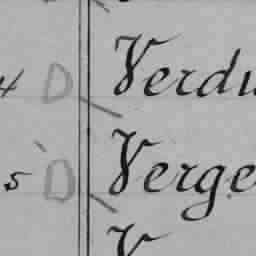 4 D Verdu
5 D Verge
V